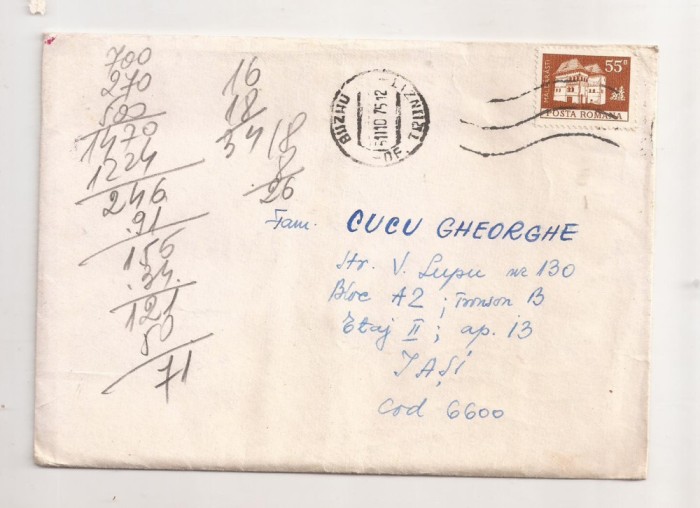 700
270
500
1470
1224
246
91
156
34
121
50
71
16
18
34
18
8
26
BUZĂU
31 10 75 12
55B
POSTA ROMANA
Fam. CUCU GHEORGHE
Str. V. Lupu nr 130
Bloc A2 ; Tronson B
Etaj II ; ap. 13
IAȘI
Cod 6600